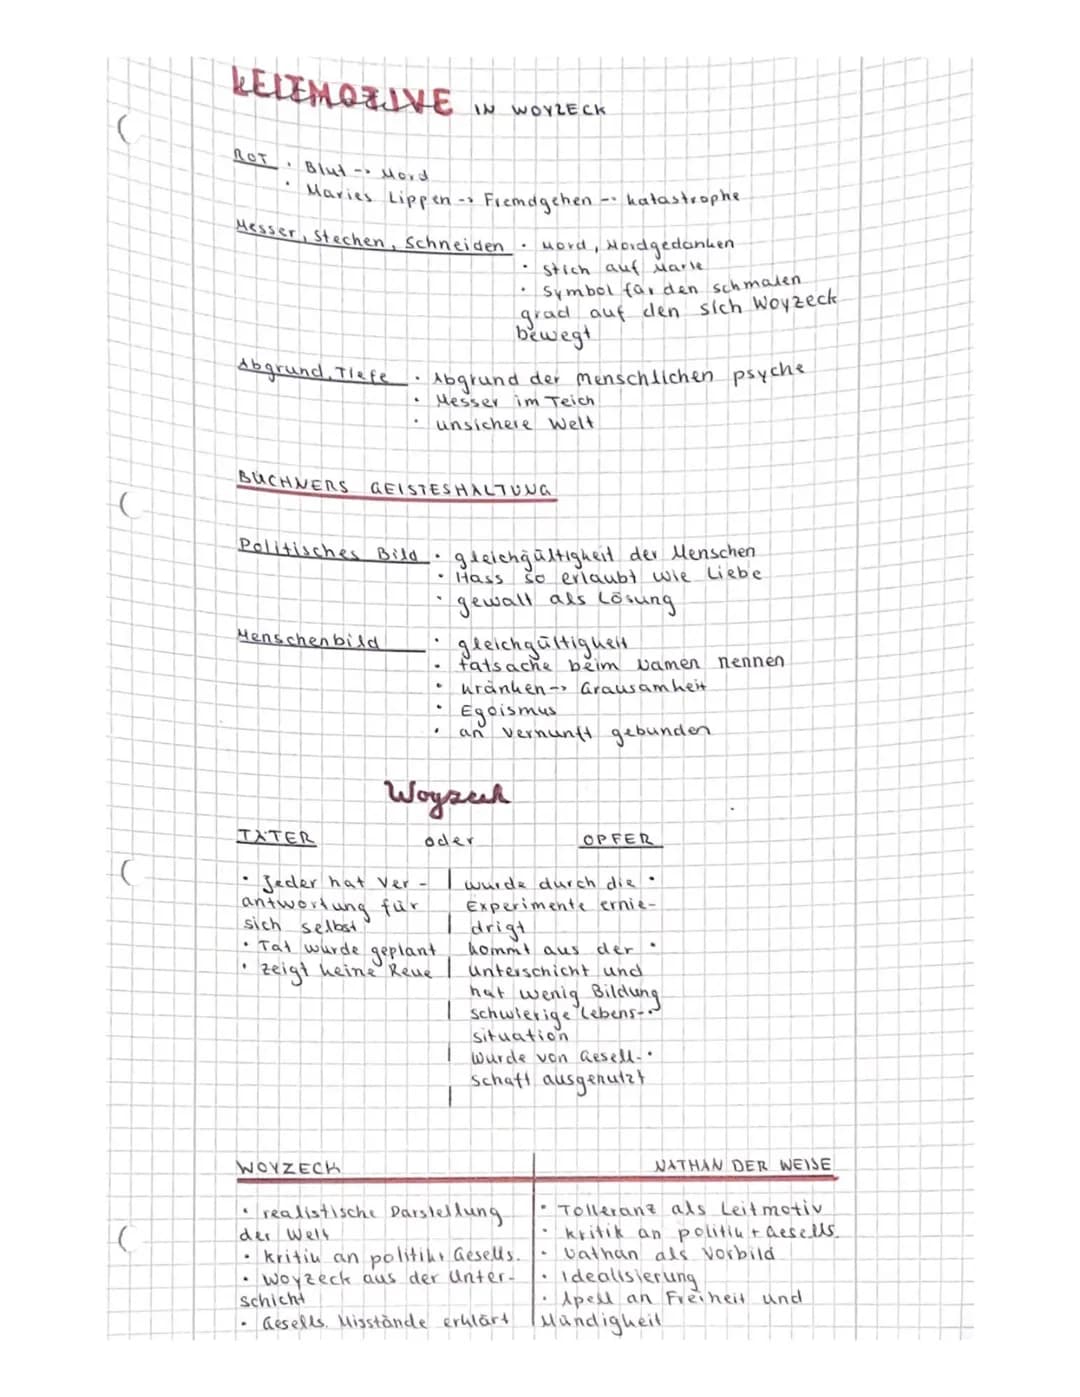 LEITMOTIVE IN WOYZECK
ROT · Blut --> Mord
· Maries Lippen --> Fremdgehen --> katastrophe
Messer, Stechen, Schneiden · Mord, Mordgedanken
· Stich auf Marie
· Symbol für den schmalen
grad auf den sich Woyzeck
bewegt
Abgrund, Tiefe · Abgrund der menschlichen psyche
· Messer im Teich
· unsichere Welt
BÜCHNERS GEISTESHALTUNG
Politisches Bild · gleichgültigkeit der Menschen
· Hass so erlaubt wie Liebe
· gewalt als Lösung
Menschenbild · gleichgültigkeit
· tatsache beim Namen nennen
· kränken --> Grausamkeit
· Egoismus
· an vernunft gebunden
Woyzeck
TÄTER oder OPFER
· Jeder hat Ver-
antwortung für
sich selbst
· Tat wurde geplant
· zeigt keine Reue
wurde durch die ·
Experimente ernie-
drigt
kommt aus der ·
Unterschicht und
hat wenig Bildung
schwierige Lebens- ·
situation
wurde von Gesell- ·
schaft ausgenutzt
WOYZECK
· realistische Darstellung
der Welt
· kritik an politik, Gesells.
· Woyzeck aus der Unter-
schicht
· Gesells. Misstände erklärt
NATHAN DER WEISE
· Tolleranz als Leitmotiv
· kritik an politik + Gesells.
· Nathan als Vorbild
· Idealisierung
· Apell an Freiheit und
Mündigkeit